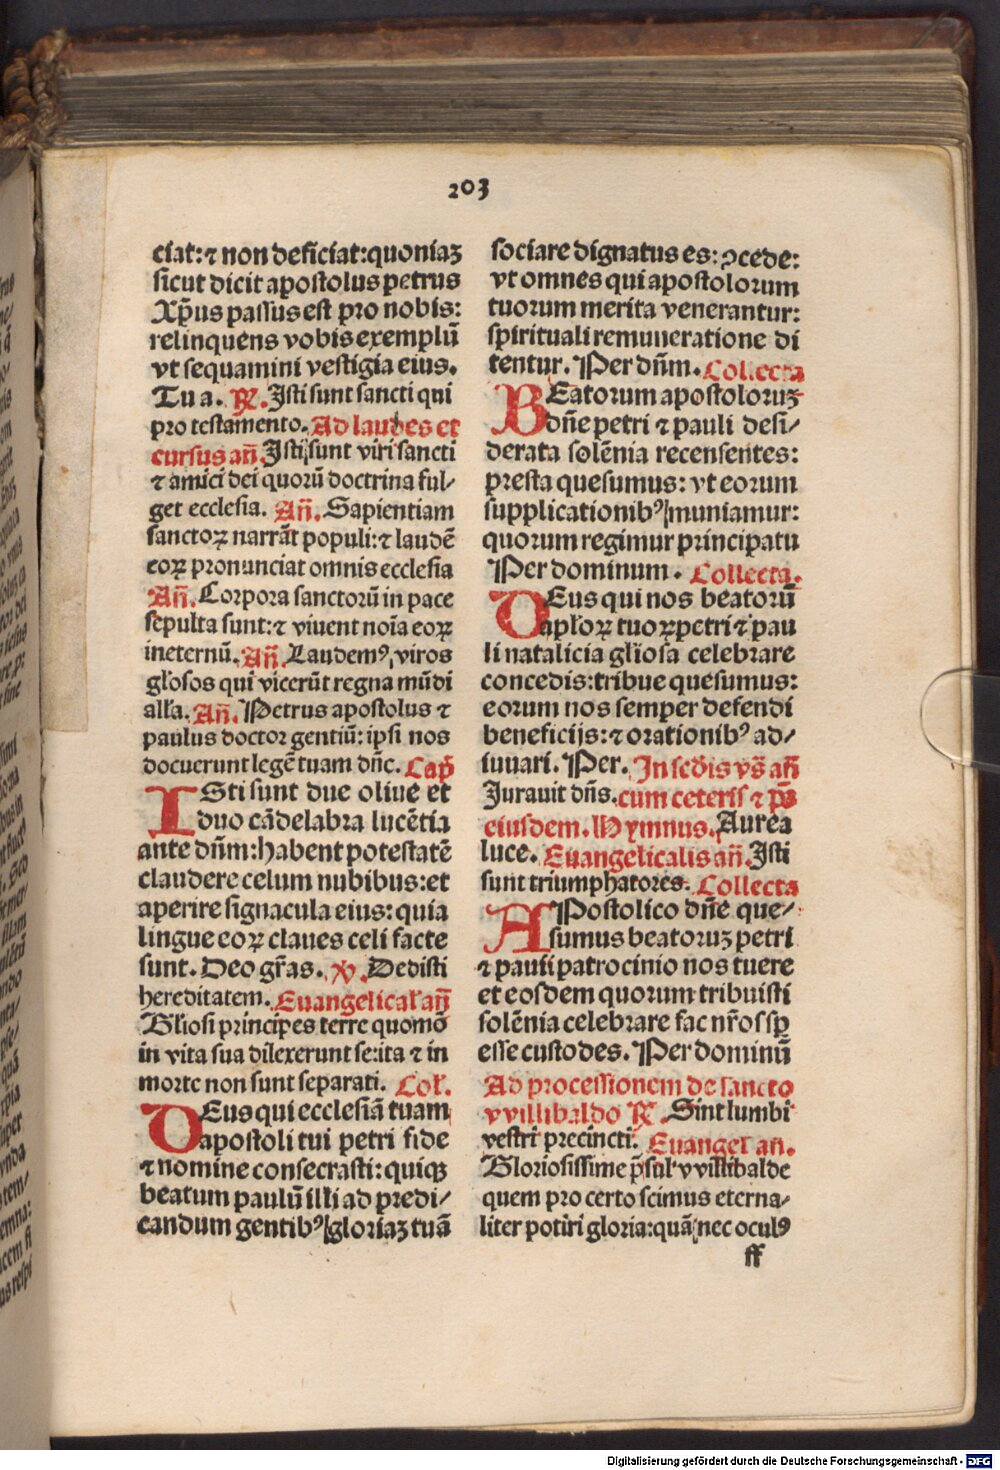 203
ciat:⁊ non deficiat:quoniaꝫ
sicut dicit apostolus petrus
Xp̄us passus est pro nobis:
relinquens vobis exemplū
vt sequamini vestigia eius.
Tu a. ℟. Isti sunt sancti qui
pro testamento. Ad laudes et
cursus añ. Isti sunt viri sancti
⁊ amici dei quorū doctrina ful⸗
get ecclesia. Añ. Sapientiam
sanctoꝝ narrāt populi:⁊ laudē
eoꝝ pronunciat omnis ecclesia
Añ. Corpora sanctorū in pace
sepulta sunt:⁊ viuent noīa eoꝝ
ineternū. Añ. Laudemꝰ viros
gl̄osos qui vicerūt regna mūdi
alľa. Añ. Petrus apostolus ⁊
paulus doctor gentiū: ipsi nos
docuerunt legē tuam dñe. Cap̄
ISti sunt due oliue et
duo cādelabra lucētia
ante dñm:habent potestatē
claudere celum nubibus:et
aperire signacula eius: quia
lingue eoꝝ claues celi facte
sunt. Deo gr̄as. ℣. Dedisti
hereditatem. Euangelical̄ añ
Gl̄iosi principes terre quomō
in vita sua dilexerunt se:ita ⁊ in
morte non sunt separati. Col̄.
DEus qui ecclesiā tuam
apostoli tui petri fide
⁊ nomine consecrasti: quiqꝫ
beatum paulū illi ad predi⸗
candum gentibꝰ gloriaꝫ tuā
sociare dignatus es: ꝯcede:
vt omnes qui apostolorum
tuorum merita venerantur:
spirituali remuneratione di
tentur. Per dñm. Collecta
BEatorum apostoloruꝫ
dñe petri ⁊ pauli desi⸗
derata solēnia recensentes:
presta quesumus: vt eorum
supplicationibꝰ muniamur:
quorum regimur principatu
Per dominum. Collecta.
DEus qui nos beatorū
apl̄oꝝ tuoꝝ petri ⁊ pau
li natalicia gl̄iosa celebrare
concedis:tribue quesumus:
eorum nos semper defendi
beneficijs:⁊ orationibꝰ ad⸗
iuuari. Per. In sc̄dis vs̄ añ
Jurauit dñs. cum ceteris ⁊ p̄s
eiusdem. Hymnus. Aurea
luce. Euangelicalis añ. Isti
sunt triumphatores. Collecta
APostolico dñe que⸗
sumus beatoruꝫ petri
⁊ pauli patrocinio nos tuere
et eosdem quorum tribuisti
solēnia celebrare fac nr̄os sꝑ
esse custodes. Per dominū
Ad processionem de sancto
vvillibaldo ℟. Sint lumbi
vestri precincti. Euangel̄ añ.
Gloriosissime p̄sul vvillibalde
quem pro certo scimus eterna⸗
liter potiri gloria:quā nec oculꝰ
ff
Digitalisierung gefördert durch die Deutsche Forschungsgemeinschaft - DFG